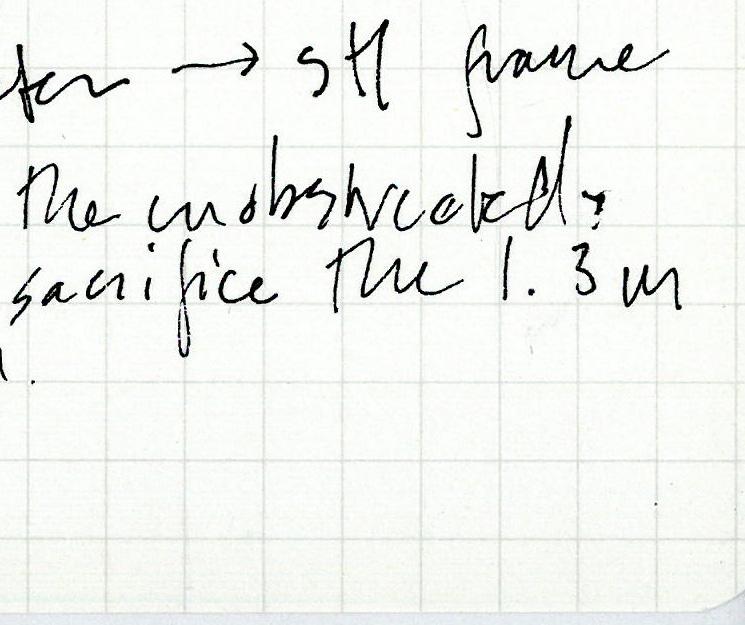 → stl frame
the unobstructed,
sacrifice the 1.3 m